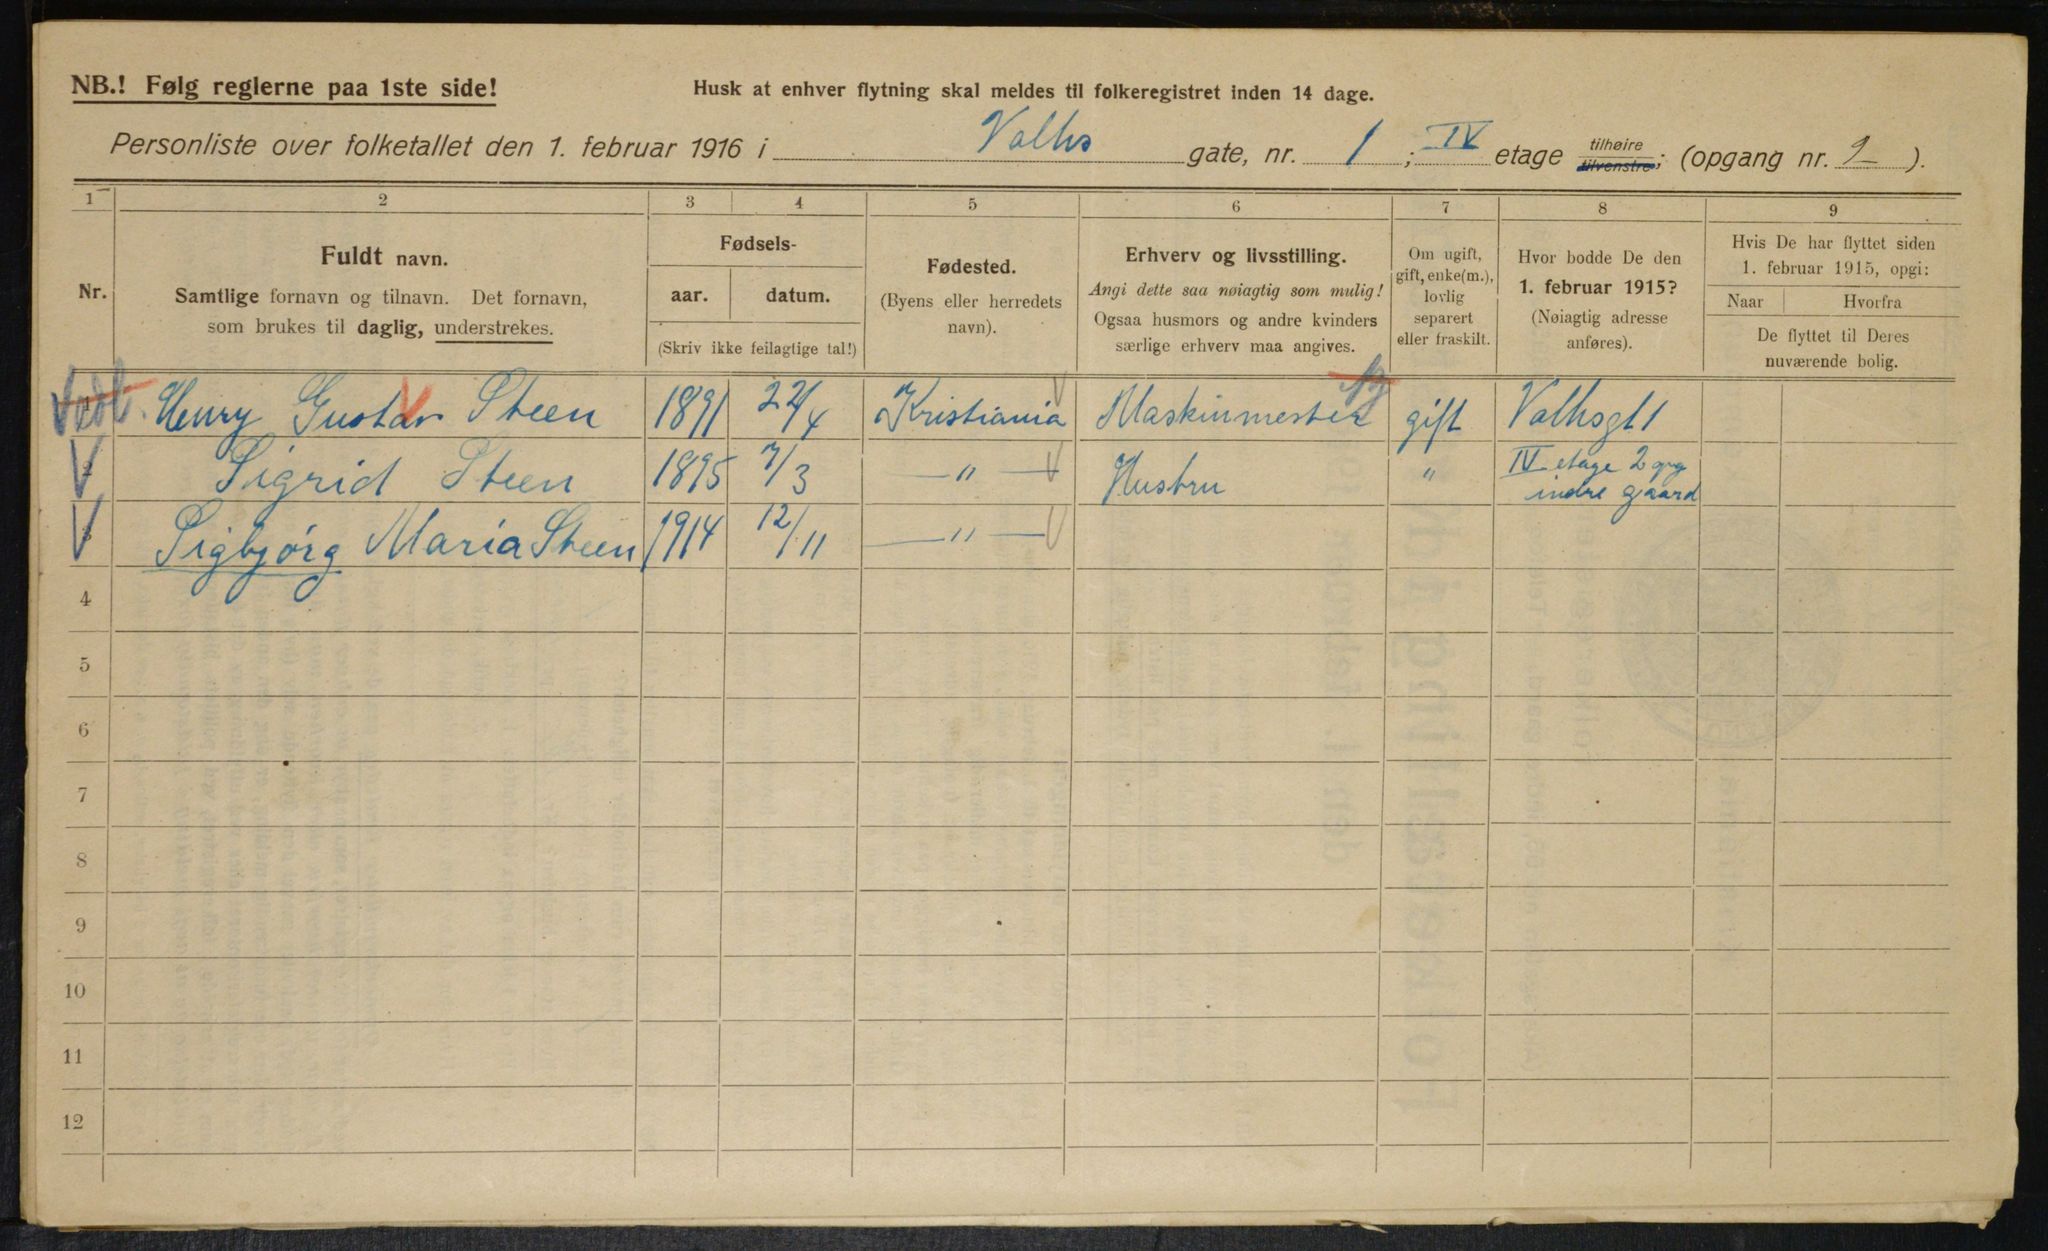 NB.! Følg reglerne paa 1ste side!
Husk at enhver flytning skal meldes til folkeregistret inden 14 dage.
Personliste over folketallet den 1. februar 1916 i Valhs gate, nr. 1 ; IV etage tilhøire tilvenstre; (opgang nr. 2 ).
1 2 3 4 5 6 7 8 9
Nr.
Fuldt navn.
Samtlige fornavn og tilnavn. Det fornavn,
som brukes til daglig, understrekes.
Fødsels-
aar. datum.
(Skriv ikke feilagtige tal!)
Fødested.
(Byens eller herredets
navn).
Erhverv og livsstilling.
Angi dette saa nøiagtig som mulig!
Ogsaa husmors og andre kvinders
særlige erhverv maa angives.
Om ugift,
gift, enke(m.),
lovlig
separert
eller fraskilt.
Hvor bodde De den
1. februar 1915?
(Nøiagtig adresse
anføres).
Hvis De har flyttet siden
1. februar 1915, opgi:
Naar Hvorfra
De flyttet til Deres
nuværende bolig.
1 Henry Gustav Steen 1891 22/4 Kristiania Maskinmester gift Valhsgt 1
2 Sigrid Steen 1895 7/3 — " — Hustru " IV etage 2 opg
indre gaard
3 Sigbjørg Maria Steen 1914 12/11 — " —
4
5
6
7
8
9
10
11
12